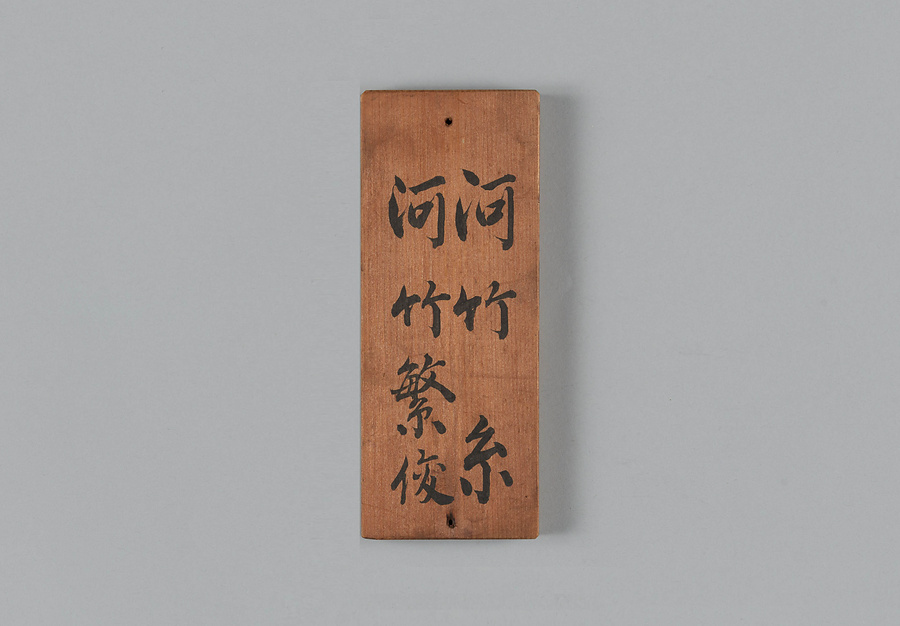 河竹糸
河竹繁俊